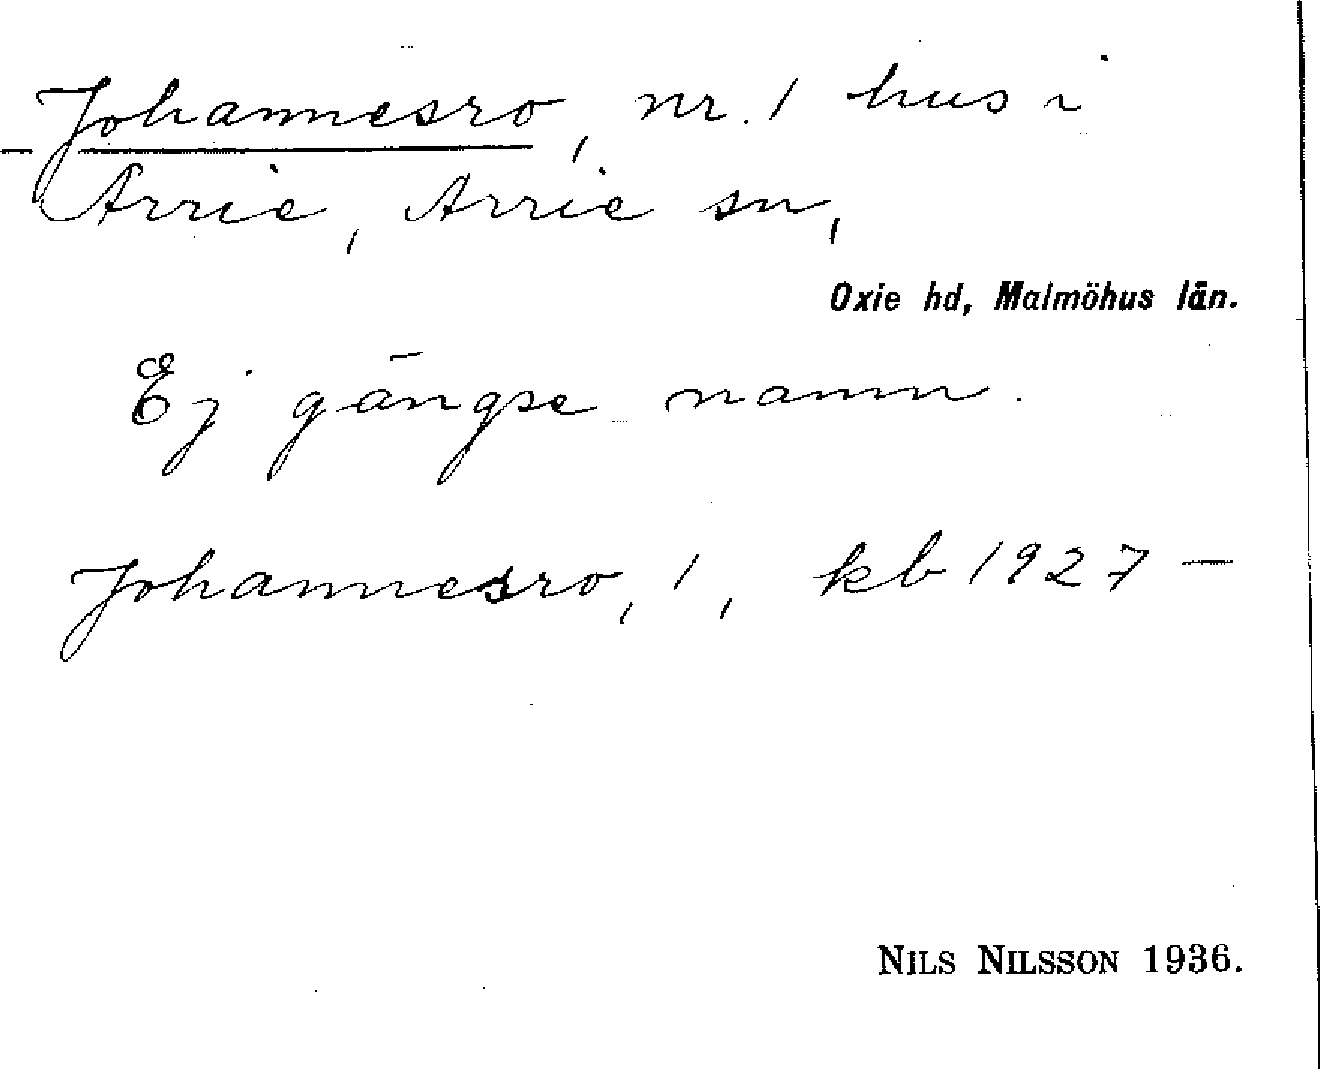 Johannesro, nr. 1 hus i
Arrie, Arrie sn,
Oxie hd, Malmöhus län.
Ej gängse namn.
Johannesro, 1, kb 1927 —
NILS NILSSON 1936.